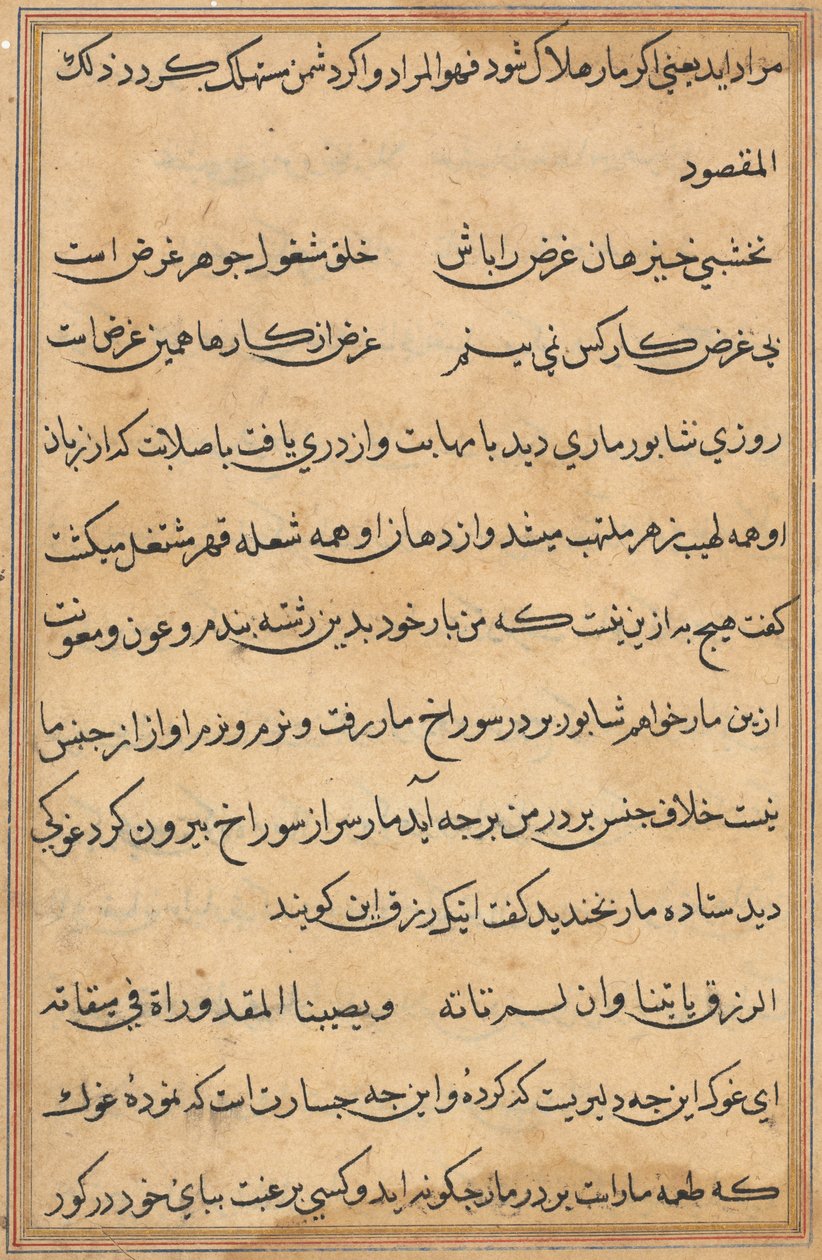 مراد اید یعنی اکر مار هلاک شود فهو المراد و اکر دشمن مستهلک کردد ذلک
المقصود
نخشبی خیز هان غرض را باش    خلق مشغول جوهر غرض است
بی غرض کار کس نمی بینم    غرض از کارها همین غرض است
روزی شابور ماری دید با مهابت و ازدری یافت با صلابت که از زبان
او همه لهیب زهر ملتهب میشد و از دهان او همه شعله قهر مشتغل میکشت
کفت هیچ به ازین نیست که من بار خود بدین رشته بندم و عون و معونت
ازین مار خواهم شابور بر در سوراخ مار رفت و نرم و نرم اواز از جنس ما
نیست خلاف جنس بر در من برجه آید مار سر از سوراخ بیرون کرد غوکی
دید ستاده مار بخندید کفت اینک رزق این کویند
الرزق یاتینا وان لم ناته    ویصیبنا المقدوراة فی میقاته
ای غوک این جه دلیریست که کردهٔ و این جه جسارت است که نمودهٔ غوک
که طعمه مار است بر در مار جکونه اید و کسی برغبت بپای خود در کور